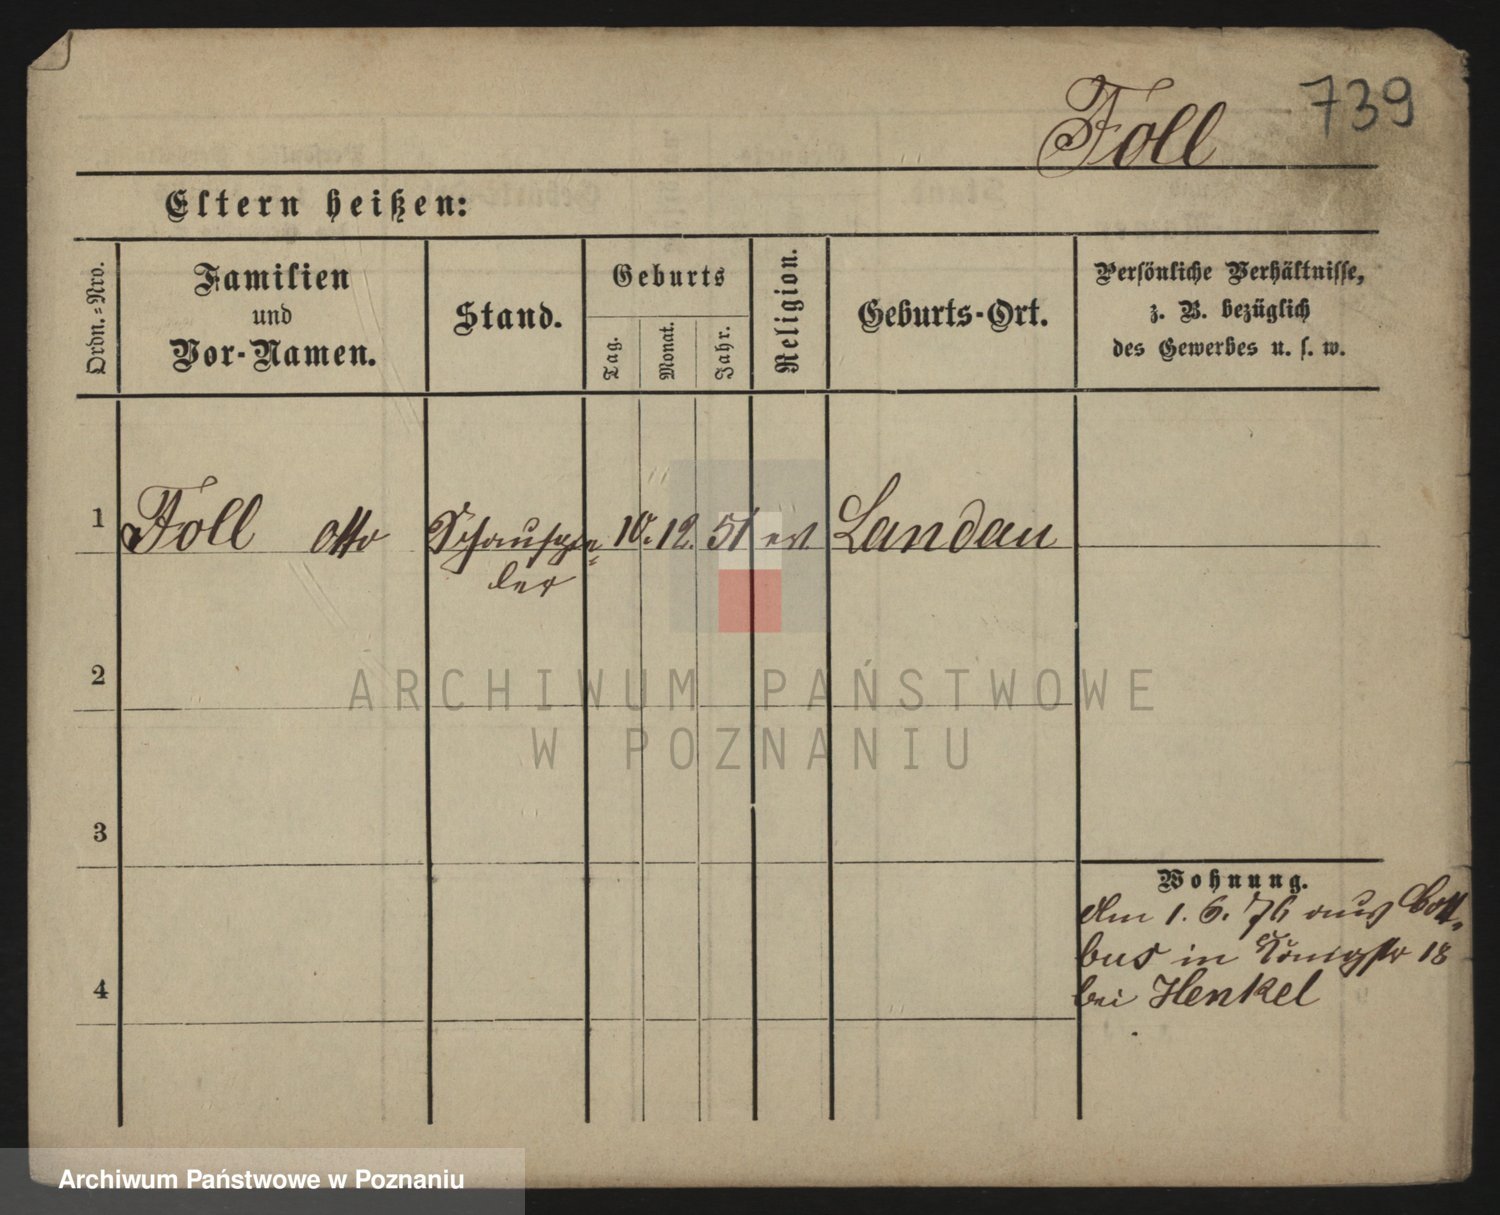 Foll 739
Eltern heißen:
Ordn.-Nro.
Familien
und
Vor-Namen.
Stand.
Geburts
Tag.
Monat.
Jahr.
Religion.
Geburts-Ort.
Persönliche Verhältnisse,
z. B. bezüglich
des Gewerbes u. s. w.
1 Foll Otto Schauspie= 10. 12. 51 Landau
ler
2
3
4
Wohnung.
Am 1. 6. 76 aus Cott=
bus in Königstr 18
bei Henkel
ARCHIWUM PAŃSTWOWE
W POZNANIU
Archiwum Państwowe w Poznaniu